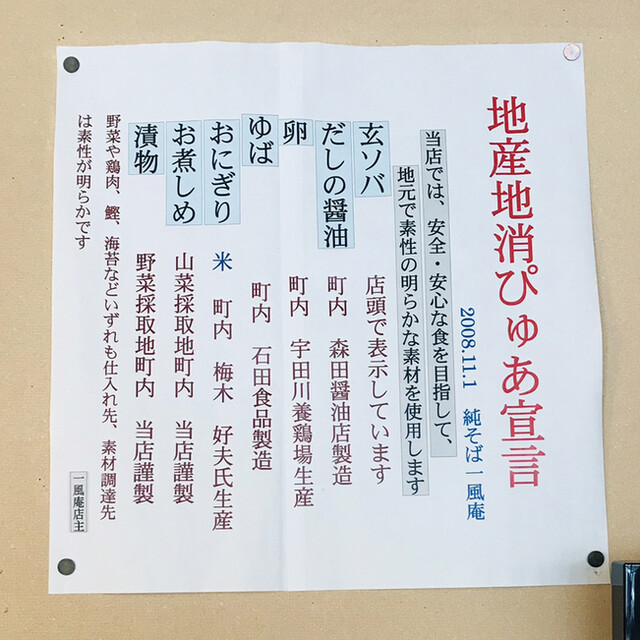 地産地消ぴゅあ宣言
2008.11.1　純そば一風庵
当店では、安全・安心な食を目指して、
地元で素性の明らかな素材を使用します
玄ソバ　店頭で表示しています
だしの醤油　町内　森田醤油店製造
卵　町内　宇田川養鶏場生産
ゆば　町内　石田食品製造
おにぎり　米　町内　梅木　好夫氏生産
お煮しめ　山菜採取地町内　当店謹製
漬物　野菜採取地町内　当店謹製
野菜や鶏肉、鰹、海苔などいずれも仕入れ先、素材調達先
は素性が明らかです
一風庵店主